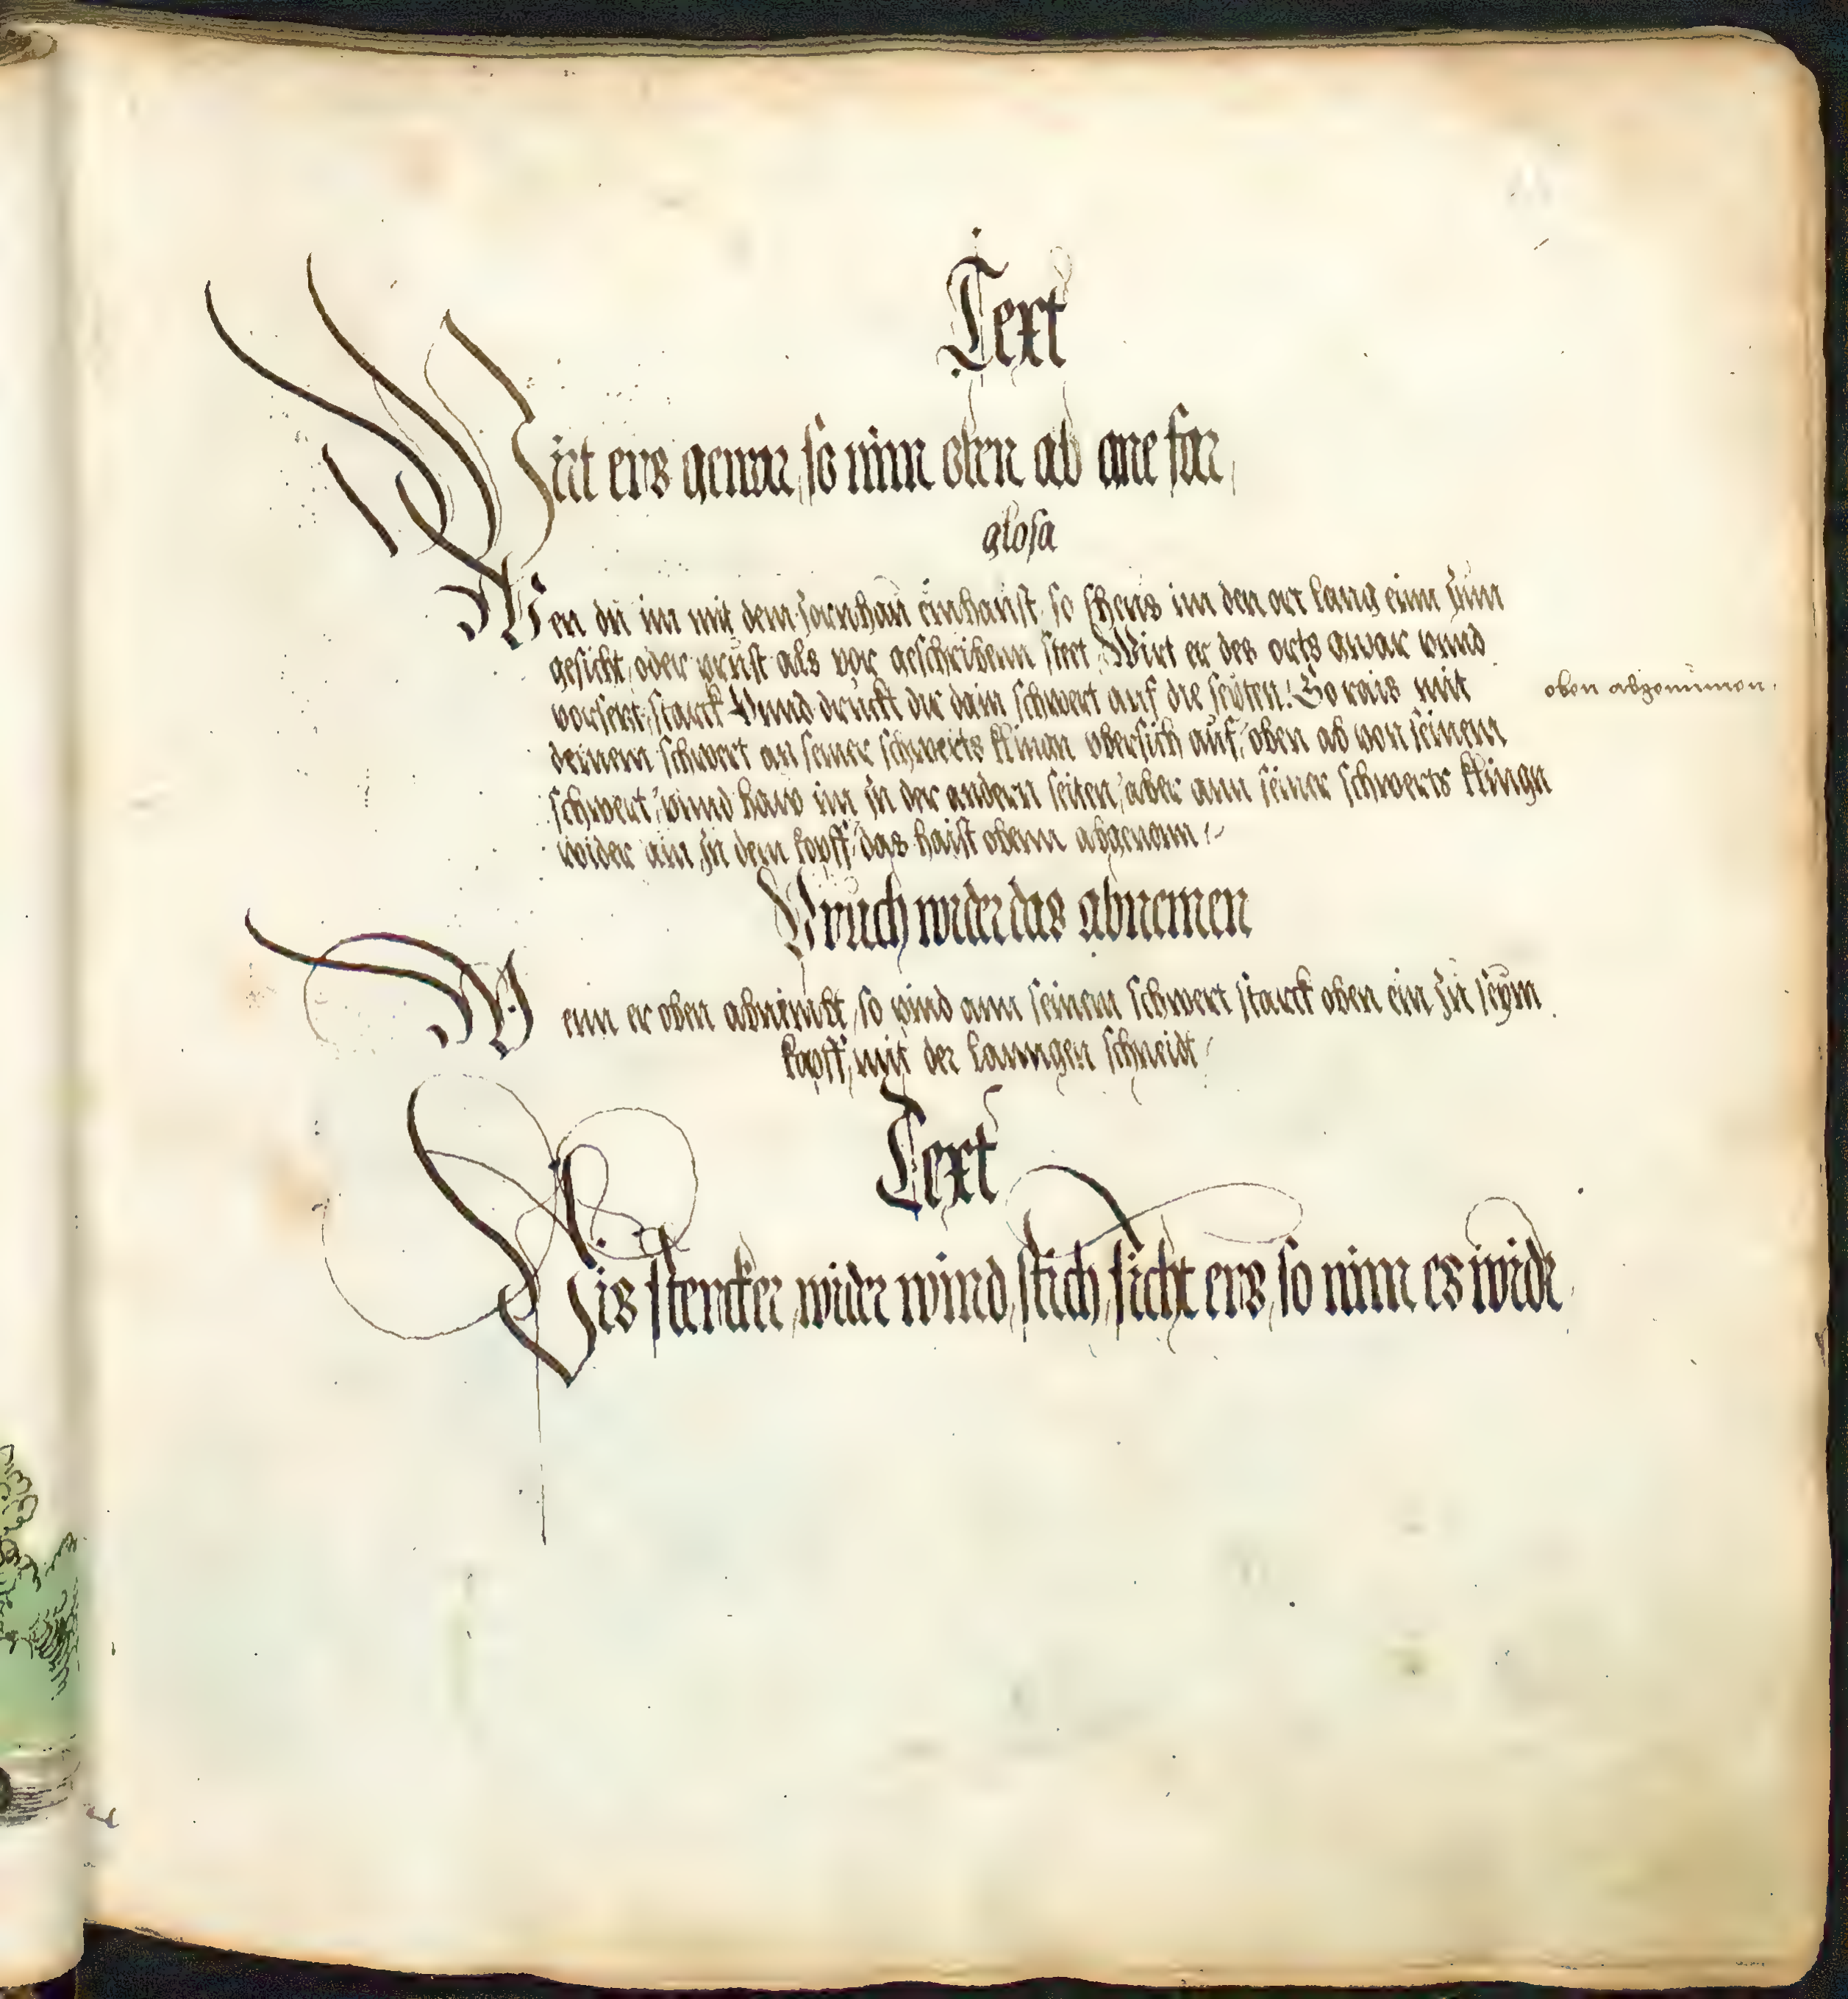 Text
Wirt ers gewar, so nim oben ab ane far,
glosa
Wen dü im mit dem zornhaŭ einhaŭst so scheŭs im den ort lang einn zŭm
gesicht, oder prŭst als vor geschribenn stett, Wirt er des orts gwar vnnd
vorsetzt, starck Vnnd drŭckt dir dain schwert auf die seyten! So rais mit
deinem schwert an seiner schwerts klingn vbersich aŭf, oben ab von seinem
schwert, vnnd haw im zŭ der andern seiten, aber ann seiner schwerts klingn
wider ain zŭ dem kopff, das haist obenn abgenom
oben abgenŭmen.
Brŭch wider das abnemen
Wenn er oben abnimbt, so wind ann seinem schwert starck oben ein zŭ seym
kopff, mit der lanngen schneidt
Text
Bis stercker wider wind, stich, sicht ers, so nim es wider